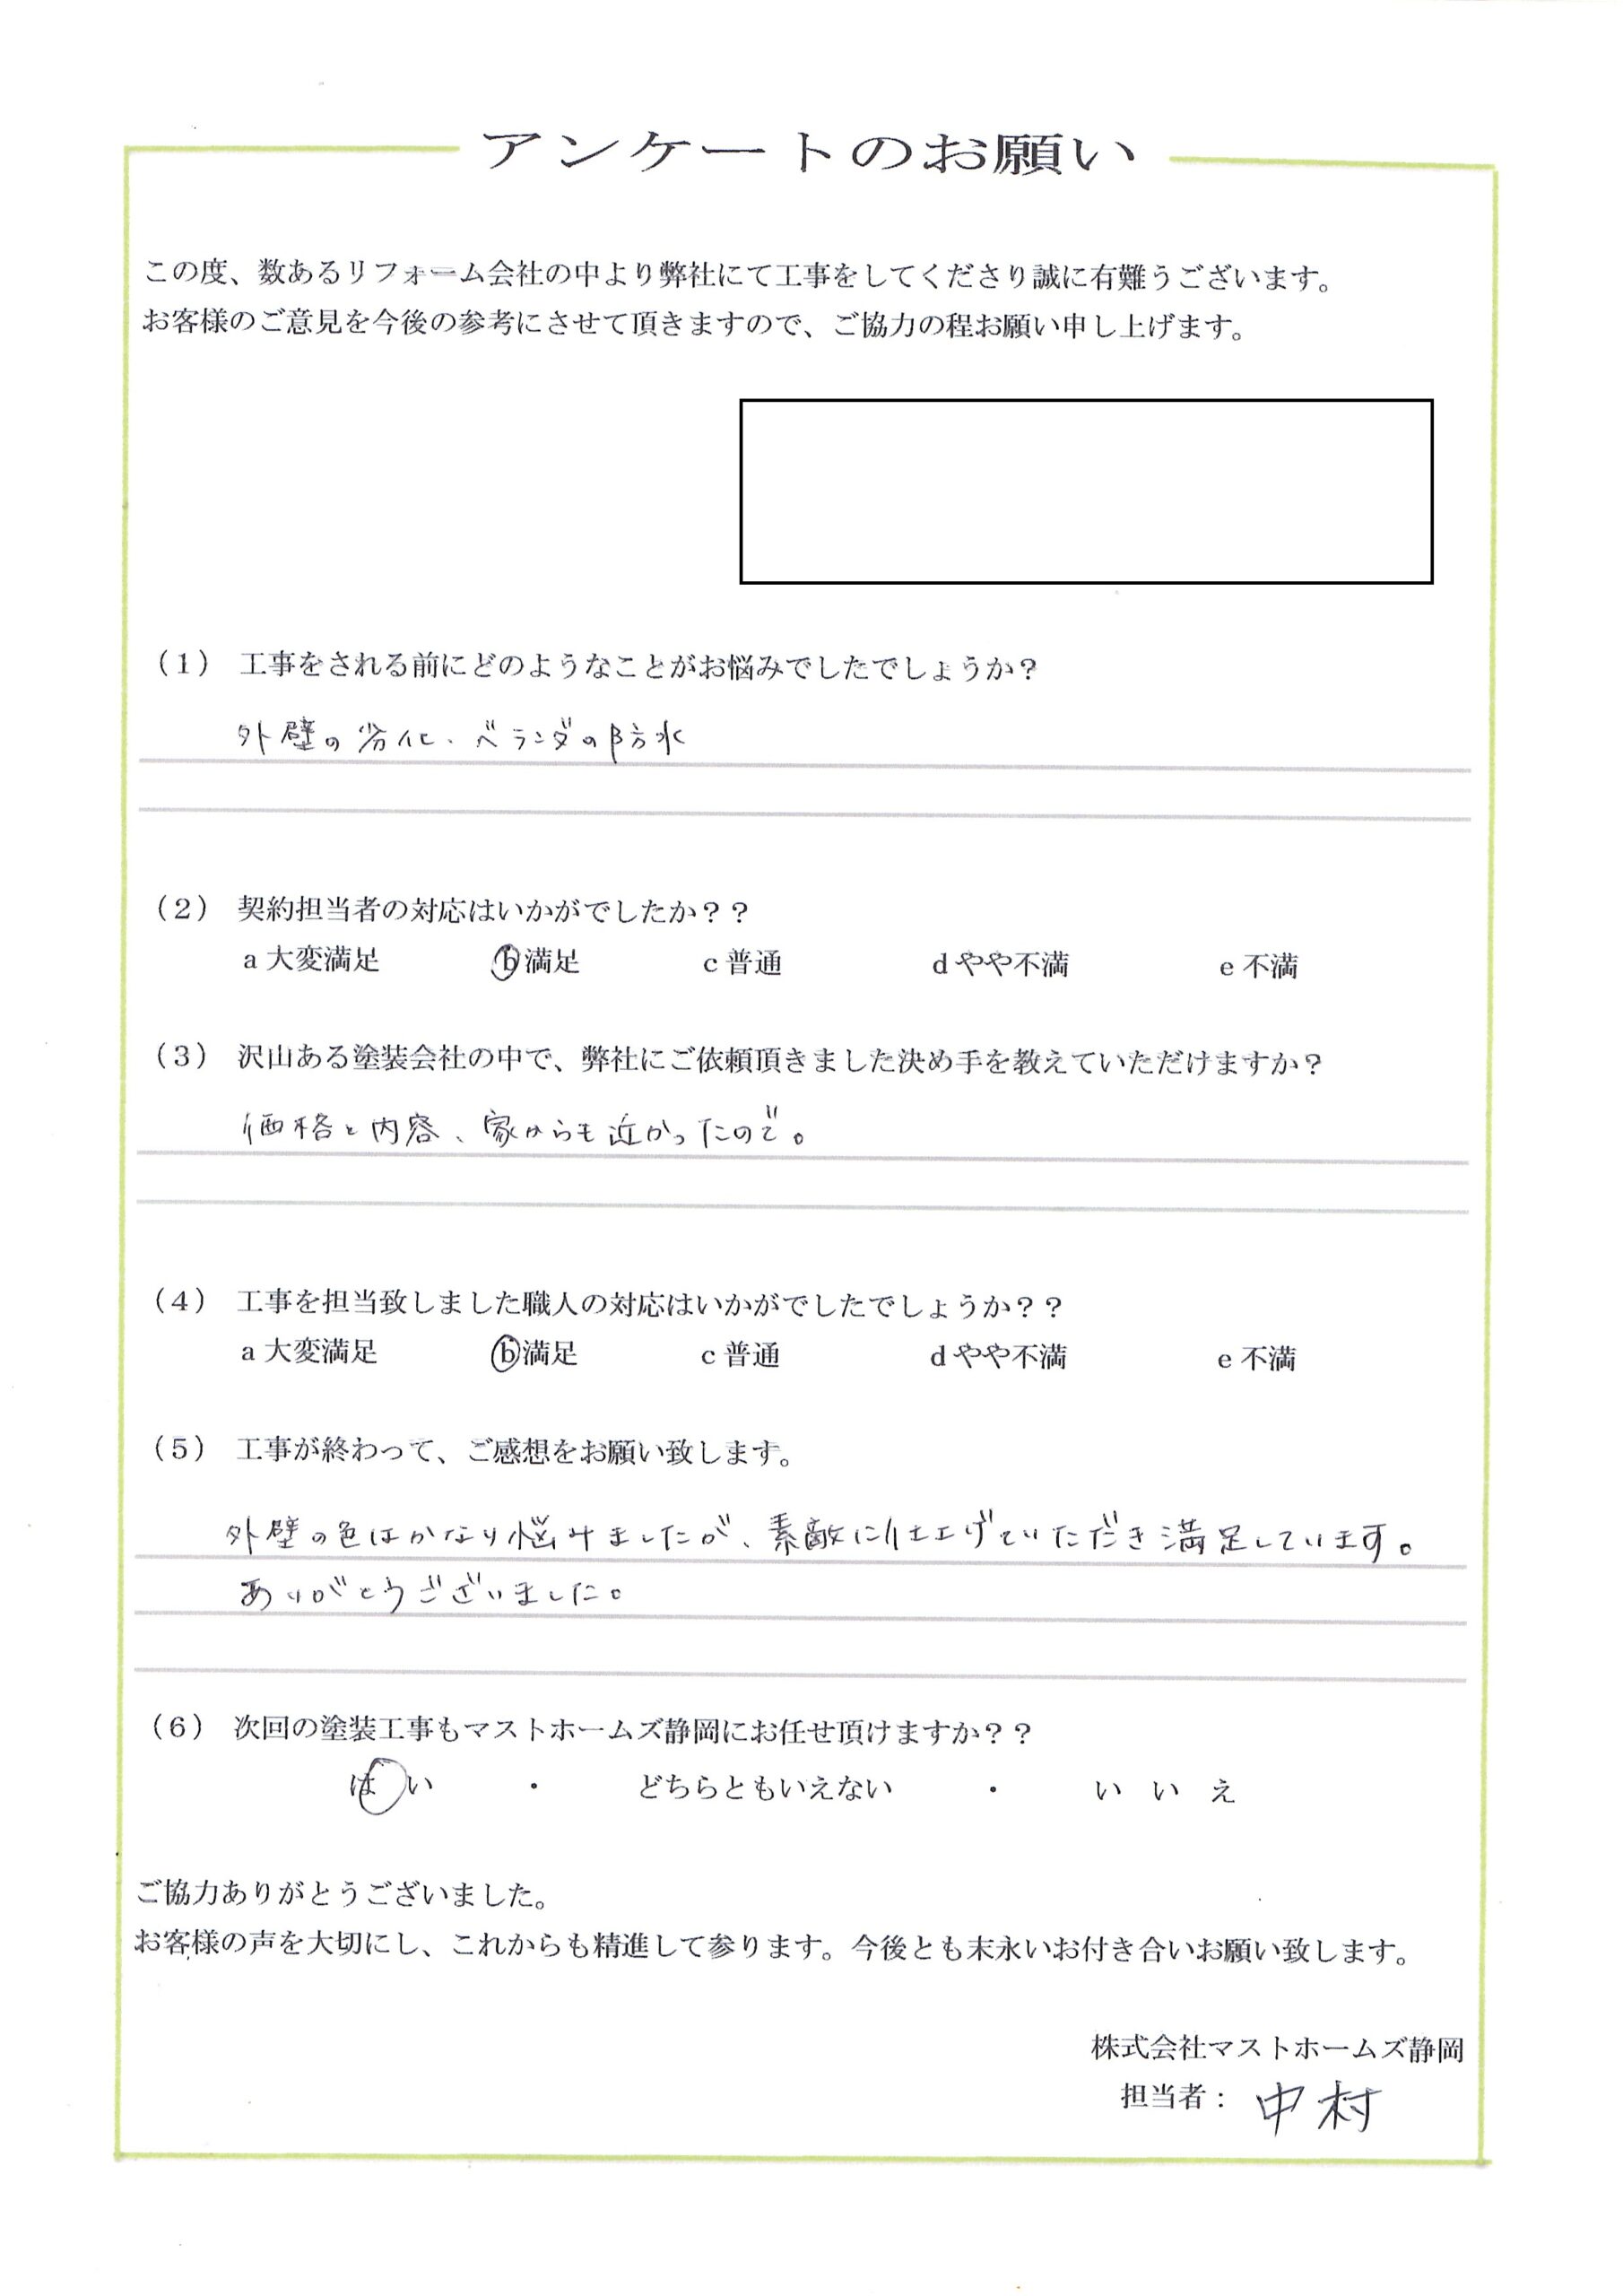 アンケートのお願い
この度、数あるリフォーム会社の中より弊社にて工事をしてくださり誠に有難うございます。
お客様のご意見を今後の参考にさせて頂きますので、ご協力の程お願い申し上げます。
（1） 工事をされる前にどのようなことがお悩みでしたでしょうか？
外壁の劣化、ベランダの防水
（2） 契約担当者の対応はいかがでしたか？？
a 大変満足 b 満足 c 普通 d やや不満 e 不満
（3） 沢山ある塗装会社の中で、弊社にご依頼頂きました決め手を教えていただけますか？
価格と内容、家からも近かったので。
（4） 工事を担当致しました職人の対応はいかがでしたでしょうか？？
a 大変満足 b 満足 c 普通 d やや不満 e 不満
（5） 工事が終わって、ご感想をお願い致します。
外壁の色はかなり悩みましたが、素敵に仕上げていただき満足しています。
ありがとうございました。
（6） 次回の塗装工事もマストホームズ静岡にお任せ頂けますか？？
はい ・ どちらともいえない ・ いいえ
ご協力ありがとうございました。
お客様の声を大切にし、これからも精進して参ります。今後とも末永いお付き合いお願い致します。
株式会社マストホームズ静岡
担当者： 中村